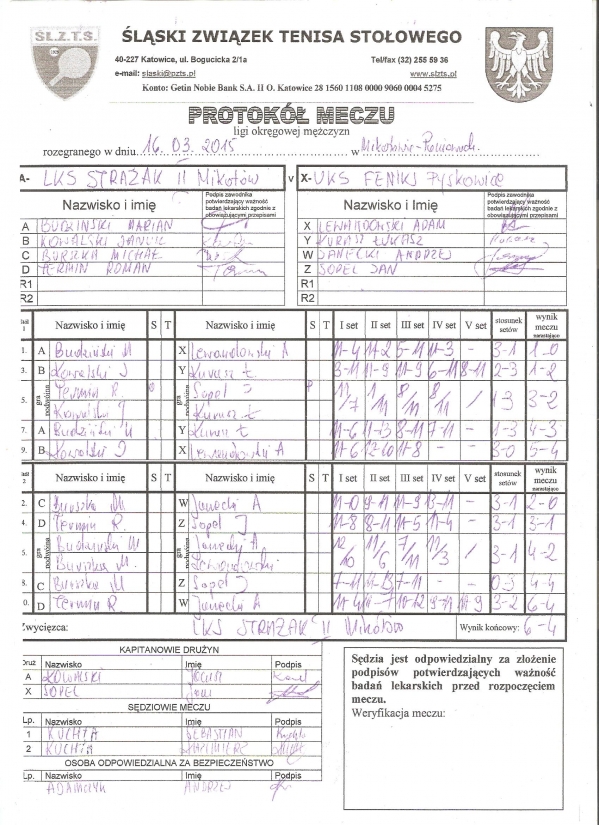 ŚL.Z.T.S.
ŚLĄSKI ZWIĄZEK TENISA STOŁOWEGO
40-227 Katowice, ul. Bogucicka 2/1a Tel/fax (32) 255 59 36
e-mail: slaski@pzts.pl www.slzts.pl
Konto: Getin Noble Bank S.A. II O. Katowice 28 1560 1108 0000 9060 0004 5275
PROTOKÓŁ MECZU
ligi okręgowej mężczyzn
rozegranego w dniu 16.03.2015 w
A- LKS STRAŻAK II Mikołów v X- UKS FENIKS Pyskowice
Nazwisko i imię Podpis zawodnika potwierdzający ważność badań lekarskich zgodnie z obowiązującymi przepisami Nazwisko i imię Podpis zawodnika potwierdzający ważność badań lekarskich zgodnie z obowiązującymi przepisami
A BUDZIŃSKI MARIAN X LEWANDOWSKI ADAM
B KOWALSKI Y KURASZ ŁUKASZ
C BURSZKA MICHAŁ W JANECKI ANDRZEJ
D TERMIN ROMAN Z SOPEL JAN
R1 R1
R2 R2
Nazwisko i imię S T Nazwisko i imię S T I set II set III set IV set V set stosunek setów wynik meczu narastająco
1. A Budziński M X Lewandowski A 11-4 11-2 5-11 11-3 - 3-1 1-0
3. B Kowalski J Y Kurasz Ł 3-11 11-9 11-9 6-11 8-11 2-3 1-2
5. gra podwójna Termin R. Sopel J 11/7 1/11 8/11 8/11 / 1-3 3-2
Kowalski J Kurasz Ł
7. A Budziński M Y Kurasz Ł 11-6 11-13 8-11 7-11 - 1-3 4-3
9. B Kowalski J X Lewandowski A 11-6 12-10 11-8 - - 3-0 5-4
Nazwisko i imię S T Nazwisko i imię S T I set II set III set IV set V set stosunek setów wynik meczu narastająco
2. C Burszka M. W Janecki A 11-0 9-11 11-9 13-11 - 3-1 2-0
4. D Termin R Z Sopel J 11-8 8-11 11-5 11-4 - 3-1 3-1
6. gra podwójna Budziński M Janecki A 12/10 11/6 7/11 11/3 / 3-1 4-2
Burszka M. Lewandowski
8. C Burszka M Z Sopel J 7-11 7-11 - - 0-3 4-4
0. D Termin R. W Janecki A 11-4 10-12 3-2 6-4
Zwycięzca: LKS STRAŻAK II Mikołów Wynik końcowy: 6-4
KAPITANOWIE DRUŻYN
Druż Nazwisko Imię Podpis
A KOWALSKI
X SOPEL Jan
SĘDZIOWIE MECZU
Lp. Nazwisko Imię Podpis
1 KUCHTA SEBASTIAN
2 KUCHTA KAZIMIERZ
OSOBA ODPOWIEDZIALNA ZA BEZPIECZEŃSTWO
Lp. Nazwisko Imię Podpis
ADAMCZYK ANDRZEJ
Sędzia jest odpowiedzialny za złożenie podpisów potwierdzających ważność badań lekarskich przed rozpoczęciem meczu.
Weryfikacja meczu: